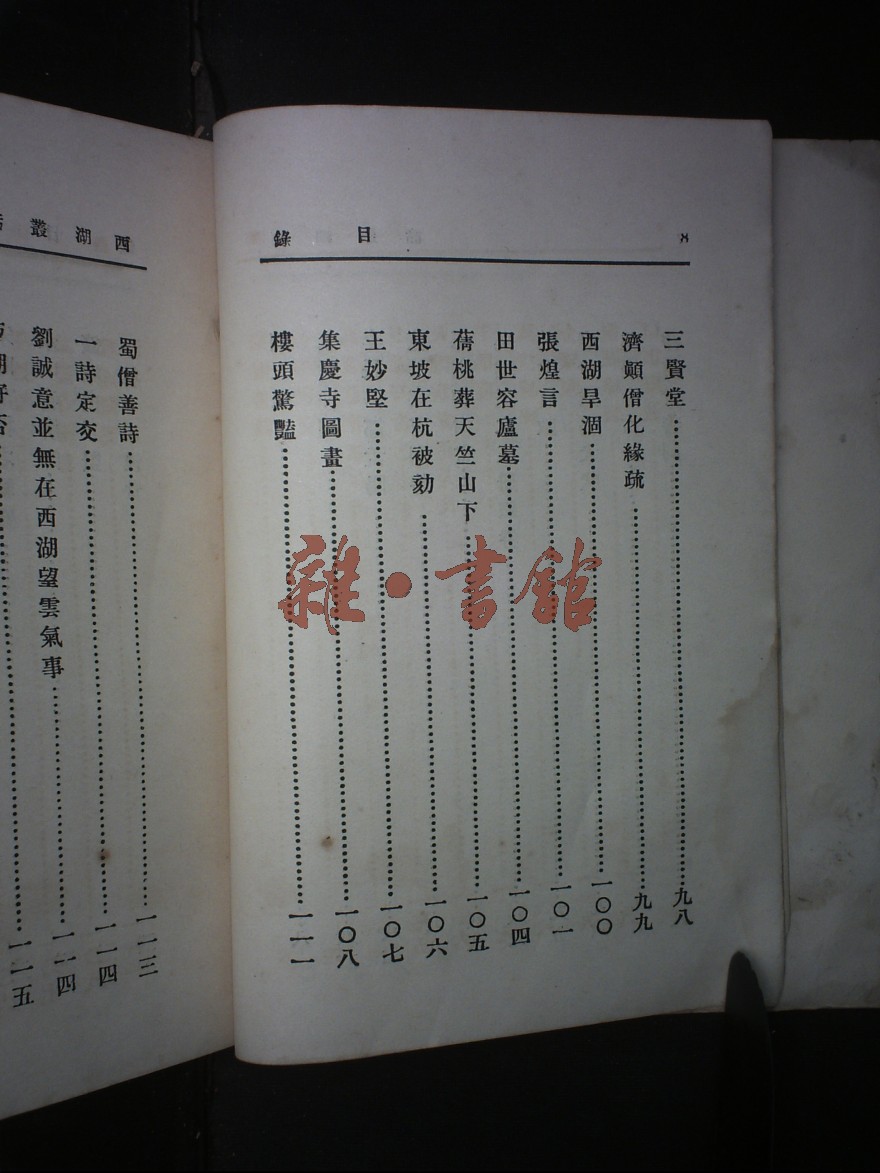 目錄
8
三賢堂……九八
濟顚僧化緣疏……九九
西湖旱涸……一〇〇
張煌言……一〇一
田世容廬墓……一〇四
蒨桃葬天竺山下……一〇五
東坡在杭被劾……一〇六
王妙堅……一〇七
集慶寺圖畫……一〇八
樓頭驚豔……一一一
西湖叢
蜀僧善詩……一一三
一詩定交……一一四
劉誠意並無在西湖望雲氣事……一一四
……一一五
雜·書館